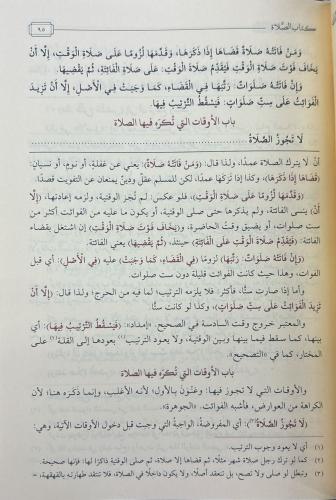 كتاب الصلاة
٩٥
وَمَنْ فَاتَتْهُ صَلَاةٌ قَضَاهَا إِذَا ذَكَرَهَا، وَقَدَّمَهَا لُزُومًا عَلَى صَلَاةِ الْوَقْتِ، إِلَّا أَنْ
يَخَافَ فَوْتَ صَلَاةِ الْوَقْتِ فَيُقَدِّمُ صَلَاةَ الْوَقْتِ: عَلَى صَلَاةِ الْفَائِتَةِ، ثُمَّ يَقْضِيهَا.
وَإِنْ فَاتَتْهُ صَلَوَاتٌ: رَتَّبَهَا فِي الْقَضَاءِ، كَمَا وَجَبَتْ فِي الْأَصْلِ، إِلَّا أَنْ تَزِيدَ
الْفَوَائِتُ عَلَى سِتِّ صَلَوَاتٍ: فَيَسْقُطُ التَّرْتِيبُ فِيهَا.
باب الأوقات التي تُكرَه فيها الصلاة
لَا تَجُوزُ الصَّلَاةُ
أن لا يترك الصلاة عمدًا، ولذا قال: (وَمَنْ فَاتَتْهُ صَلَاةٌ) يعني عن غفلةٍ، أو نومٍ، أو نسيانٍ:
(قَضَاهَا إِذَا ذَكَرَهَا)، وكذا إذا تركها عمدًا، لكن للمسلم عقلٌ ودينٌ يمنعان عن التفويت قصدًا.
(وَقَدَّمَهَا لُزُومًا عَلَى صَلَاةِ الْوَقْتِ)، فلو عكس: لم تُجز الوقتية، ولزمه إعادتها، (إِلَّا
أَنْ) ينسى الفائتة، ولم يذكرها حتى صلى الوقتية، أو يكون ما عليه من الفوائت أكثر من
ست صلوات، أو يضيق وقت الحاضرة، و(يَخَافَ فَوْتَ صَلَاةِ الْوَقْتِ) إن اشتغل بقضاء
الفائتة: (فَيُقَدِّمُ صَلَاةَ الْوَقْتِ عَلَى الْفَائِتَةِ) حينئذ، (ثُمَّ يَقْضِيهَا) يعني الفائتة.
(وَإِنْ فَاتَتْهُ صَلَوَاتٌ: رَتَّبَهَا) لزومًا (فِي الْقَضَاءِ، كَمَا وَجَبَتْ) عليه (فِي الْأَصْلِ)، أي قبل
الفوات، وهذا حيث كانت الفوائت قليلة دون ست صلوات.
وأما إذا صارت ستًّا، فأكثر: فلا يلزمه الترتيب؛ لما فيه من الحرج؛ ولذا قال: (إِلَّا أَنْ
تَزِيدَ الْفَوَائِتُ عَلَى سِتِّ صَلَوَاتٍ)، وكذا لو كانت ستًّا
والمعتبر خروج وقت السادسة في الصحيح. «إمداد»: (فَيَسْقُطُ التَّرْتِيبُ فِيهَا): أي
بينها، كما سقط فيما بينها وبين الوقتية، ولا يعود الترتيب(١) بعودها إلى القلة(٢) على
المختار، كما في «التصحيح».
باب الأوقات التي تُكرَه فيها الصلاة
والأوقات التي لا تجوز فيها: وعَنْوَنَ بالأول؛ لأنه الأغلب، وإنما ذكره هنا؛ لأن
الكراهة من العوارض، فأشبه الفوائت. «الجوهرة».
(لَا تَجُوزُ الصَّلَاةُ)(٣): أي المفروضةُ، الواجبةُ التي وجبت قبل دخول الأوقات الآتية، وهي:
(١) أي لا يعود وجوب الترتيب.
(٢) كما لو ترك رجل صلاة شهر مثلًا، ثم قضاها إلا صلاة، ثم صلى الوقتية ذاكرًا لها: فإنها صحيحة.
(٣) وتبطل لو صلى ولا تصح، بل تنعقد أصلًا، ولا يكون داخلًا في الصلاة، فلا تنتقد طهارته بالقهقهة،